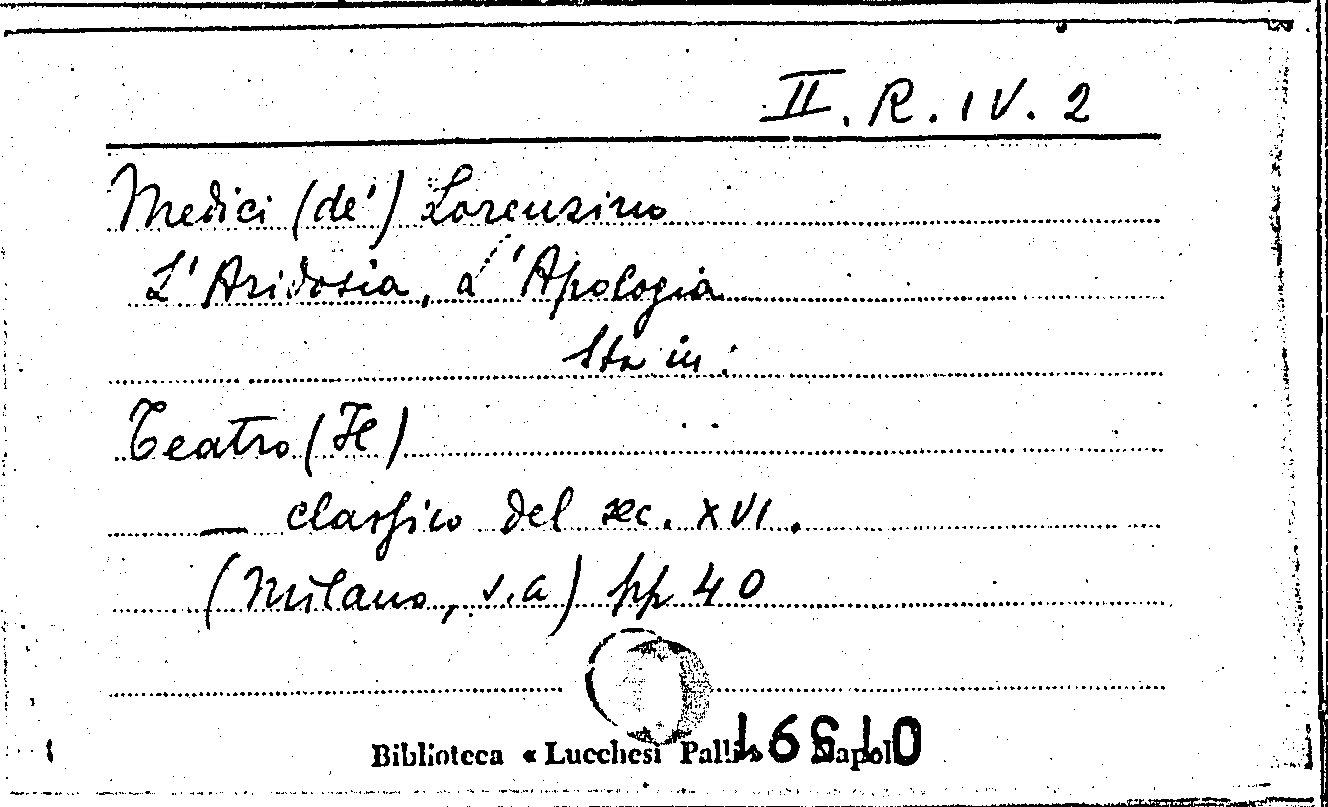 II. R. IV. 2
Medici (de') Lorenzino
L'Aridosia, L'Apologia
Sta in:
Teatro (Il)
— classico del sec. XVI.
(Milano, s.a) pp 40
Biblioteca « Lucchesi Palli » Napoli